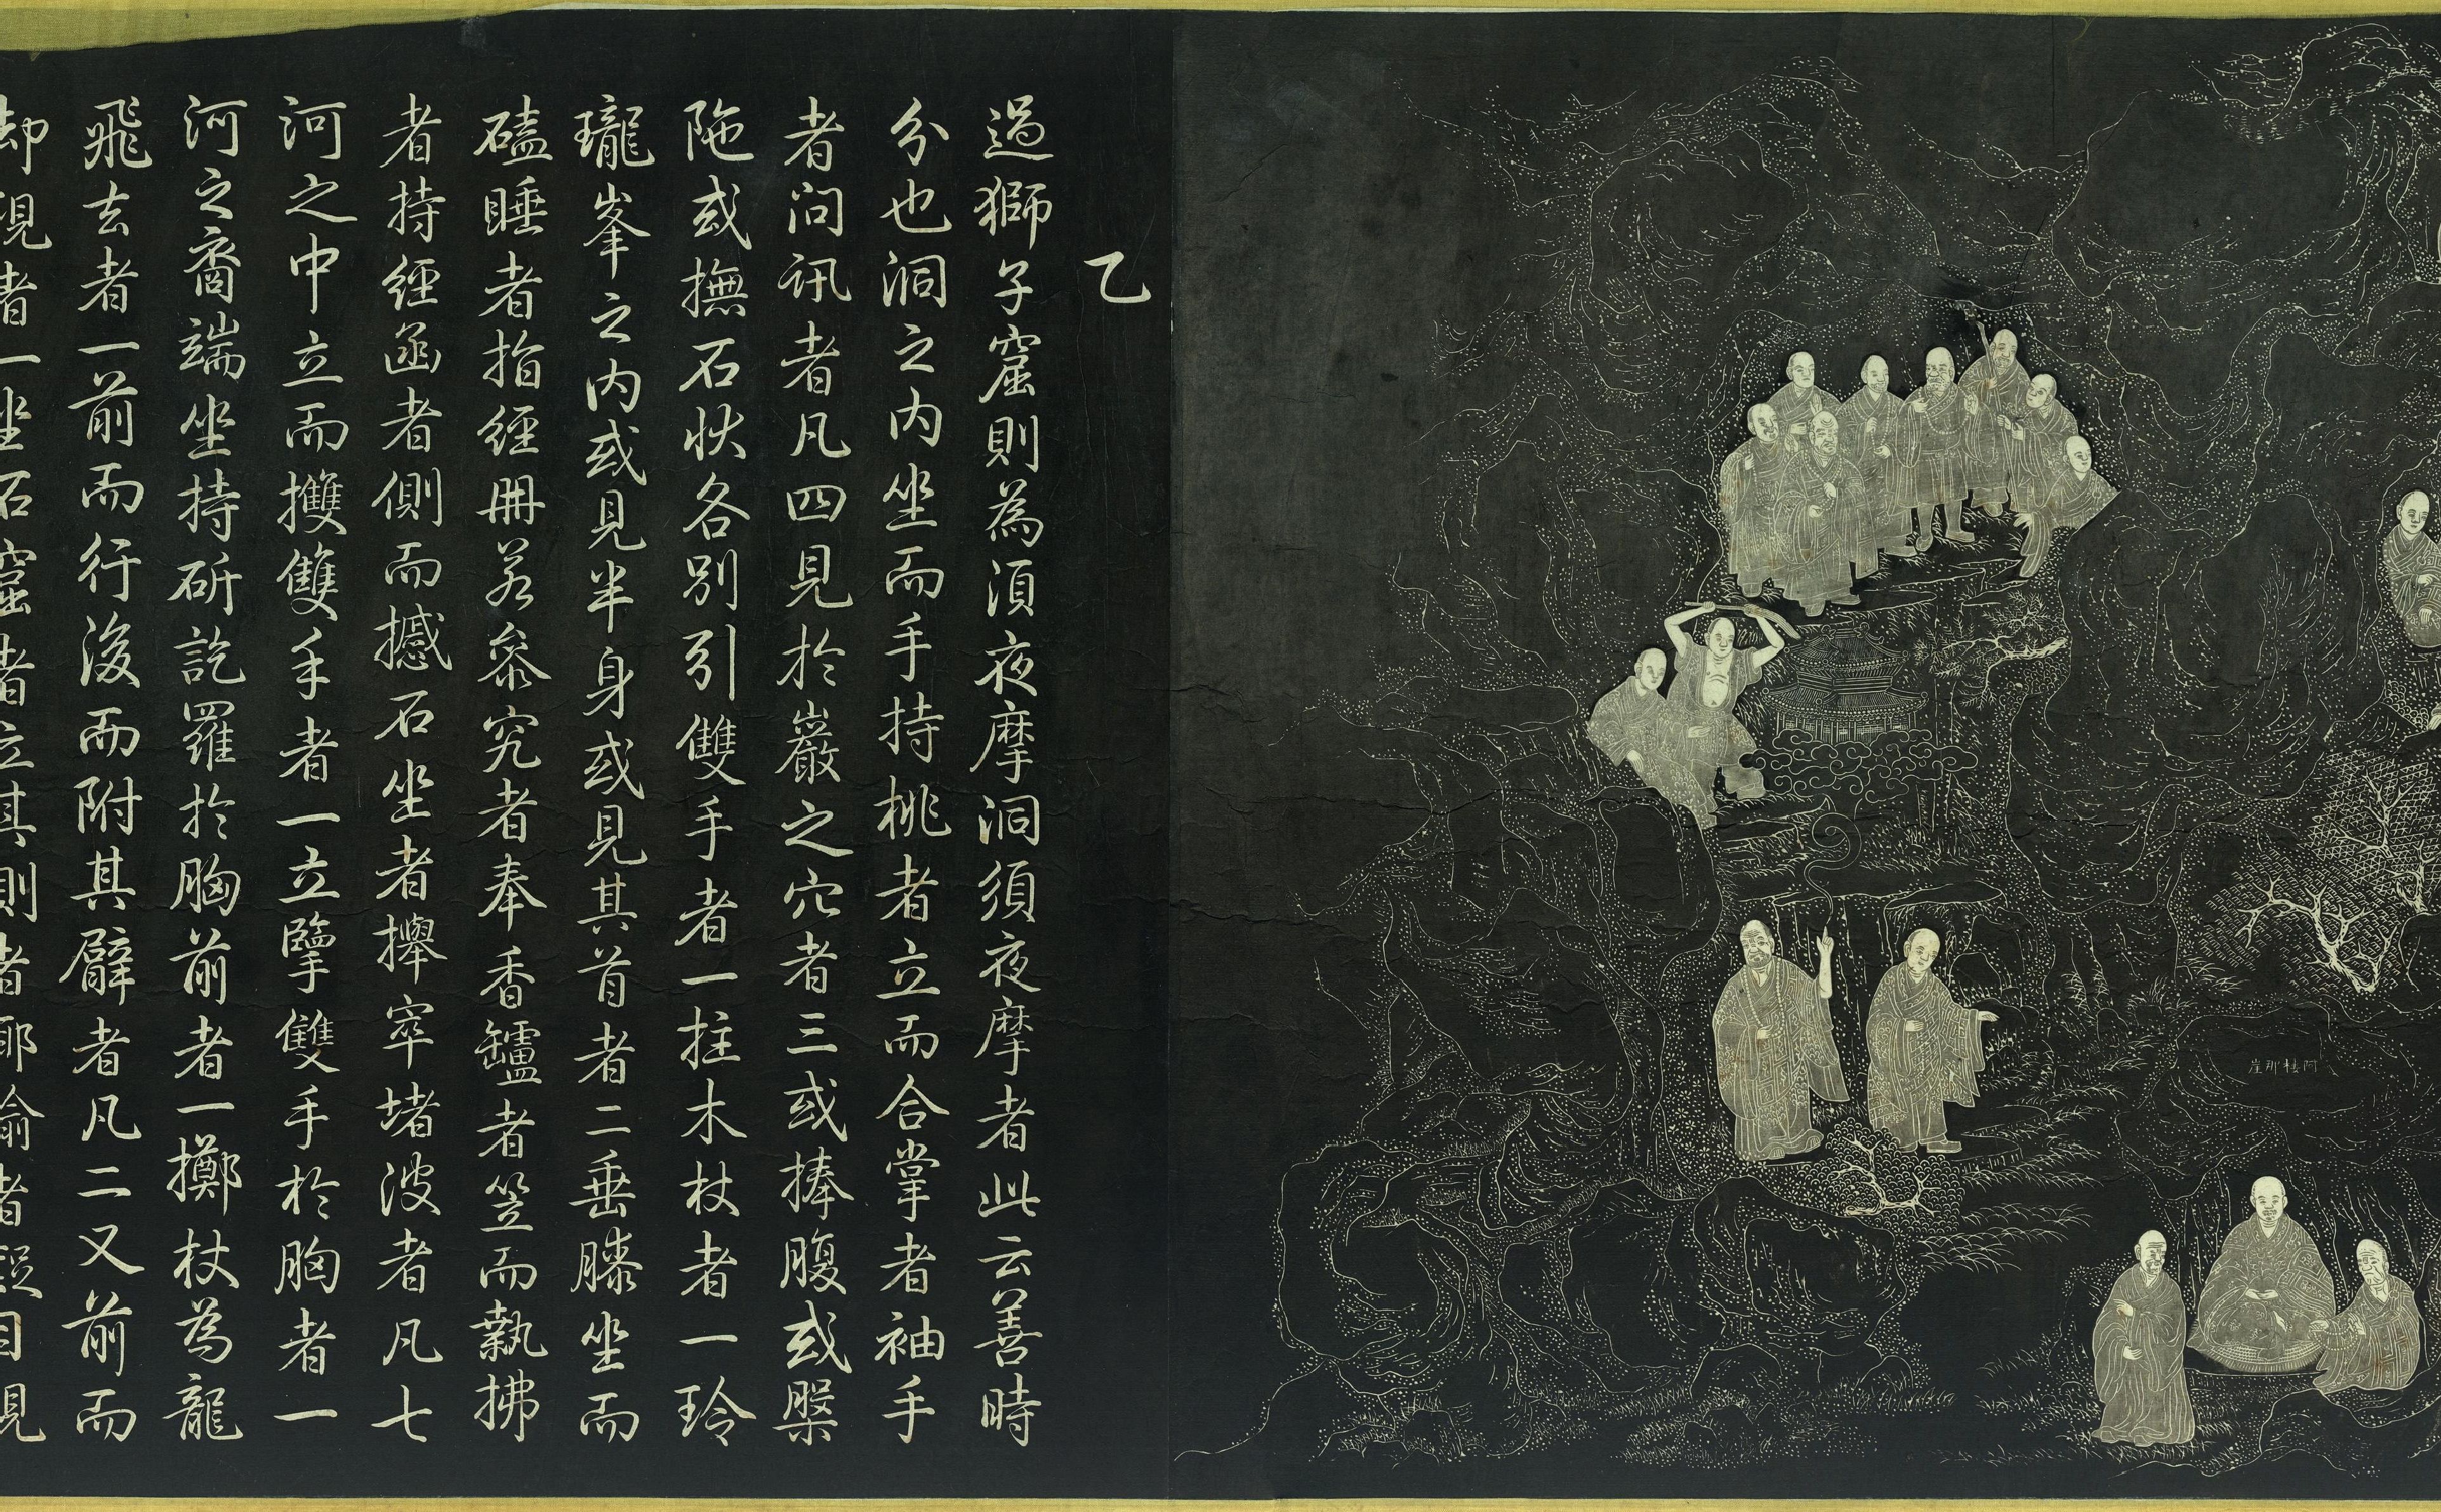 乙
過獅子窟則為湏夜摩洞須夜摩者此云善時
分也洞之内坐而手持桃者立而合掌者袖手
者问訊者凡四見於巖之穴者三或捧腹或槃
陁或撫石狀各別引雙手者一拄木杖者一玲
瓏峯之内或見半身或見其首者二垂膝坐而
磕睡者指經冊若叅究者奉香罏者笠而執拂
者持經函者側而撼石坐者攑窣堵波者凡七
河之中立而攫雙手者一立擥雙手於胸者一
河之裔端坐持斫訖羅於胸前者一擲杖為龍
飛去者一前而行後而附其臂者凡二又前而
却視者一坐石窟者立其側者揶揄者目視